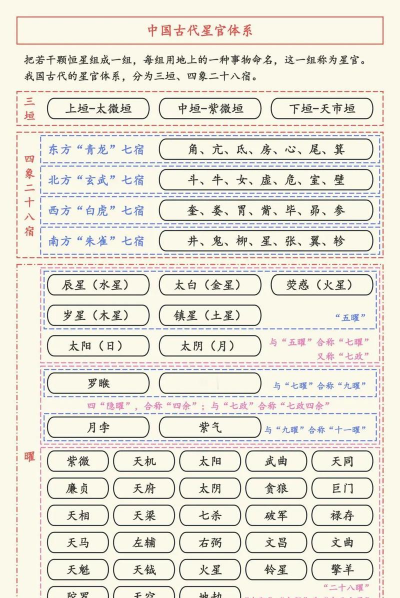 中国古代星官体系
把若干颗恒星组成一组，每组用地上的一种事物命名，这一组称为星官。
我国古代的星官体系，分为三垣、四象二十八宿。
三垣
上垣-太微垣 中垣-紫微垣 下垣-天市垣
四象二十八宿
东方“青龙”七宿 角、亢、氐、房、心、尾、箕
北方“玄武”七宿 斗、牛、女、虚、危、室、壁
西方“白虎”七宿 奎、娄、胃、觜、毕、昴、参
南方“朱雀”七宿 井、鬼、柳、星、张、翼、轸
曜
辰星（水星） 太白（金星） 荧惑（火星）
岁星（木星） 镇星（土星） “五曜”
太阳（日） 太阴（月） 与“五曜”合称“七曜”
又称“七政”
罗睺 与“七曜”合称“九曜”
四“隐曜”，合称“四余”；与“七政”合称“七政四余”
月孛 紫气 与“九曜”合称“十一曜”
紫微 天机 太阳 武曲 天同
廉贞 天府 太阴 贪狼 巨门
天相 天梁 七杀 破军 禄存
天马 左辅 右弼 文昌 文曲
天魁 天钺 火星 铃星 擎羊
“二十八曜”